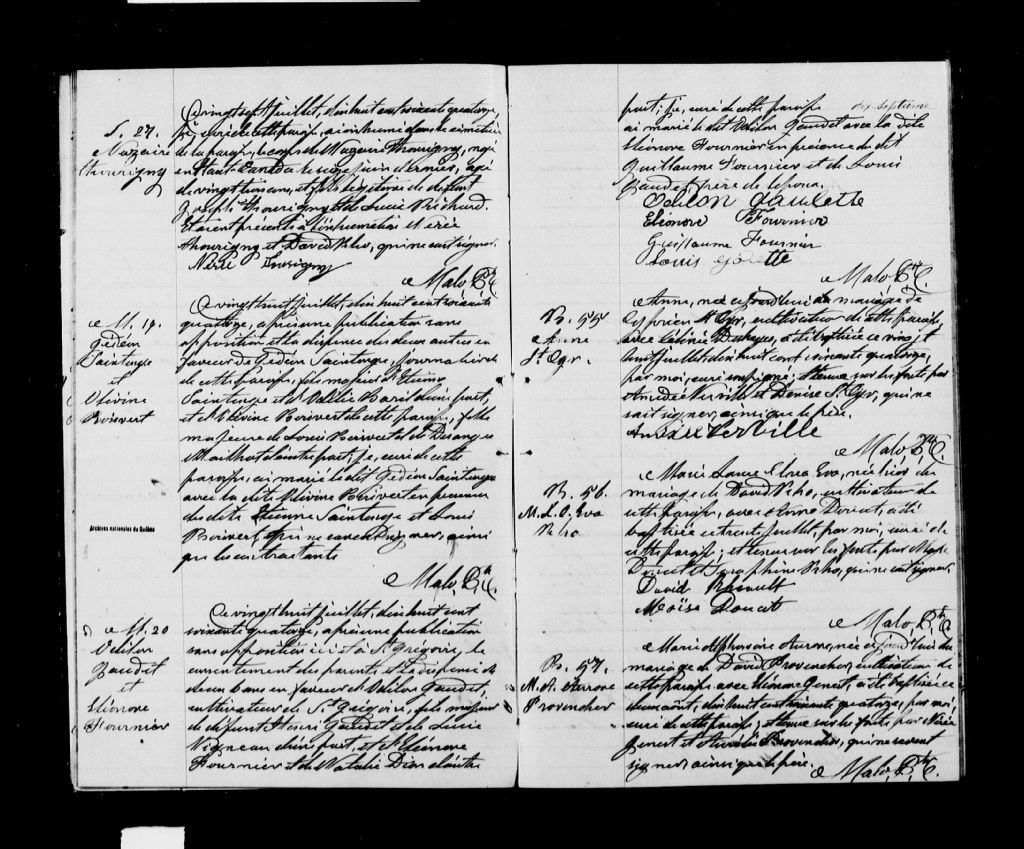 S. 27.
Nazaire
Thourigny
Ce vingt sept Juillet, dix huit cent soixante quatorze,
je, curé de cette paroisse, ai inhumé dans le cimetière
de la paroisse, le corps de Nazaire Thourigny,
en Haut-Canada le seize juin dernier, âgé
de vingt trois ans, et fils légitime de défunt
Joseph Thourigny et de Lucie Richard.
Etaient présents à l'inhumation Nérée
Thourigny et David Rho, qui ne sait signer.
Néré Thurigny
Malo, Ptr. C.
M. 19.
Gédéon
Saintonge
et
Olivine
Boisvert
Ce vingt huit Juillet, dix huit cent soixante
quatorze, après une publication sans
opposition et la dispense des deux autres en
faveur de Gédéon Saintonge, journalier
de cette Paroisse, fils majeur d'Etienne
Saintonge et d'Odélie Baril d'une part,
et d'Olivine Boisvert de cette paroisse, fille
majeure de Louis Boisvert et de Desanges
Mailhot d'autre part, je, curé de cette
paroisse, ai marié le dit Gédéon Saintonge
avec la dite Olivine Boisvert en présence
du dit Etienne Saintonge et Louis
Boisvert qui ne savent signer, ainsi
que les contractants
Malo, Ptr. C.
Archives nationales du Québec
M. 20
Odilon
Gaudet
et
Eléonore
Fournier
Ce vingt huit juillet, dix huit cent
soixante quatorze, après une publication
sans opposition ici et à St Grégoire, le
consentement des parents, et la dispense de
deux bans en faveur d'Odilon Gaudet,
cultivateur de St Grégoire, fils majeur
de défunt Henri Gaudet et de Lucie
Vigneau d'une part, et d'Eléonore
Fournier et de Natalie Dion d'autre
dix-septième
part; je, curé de cette paroisse
ai marié le dit Odilon Gaudet avec la dite
Eléonore Fournier en présence du dit
Guillaume Fournier et de Louis
Gaudet, frère de l'époux.
Odilon Gaudette
Eléonore Fournier
Guillaume Fournier
Louis Godette
Malo, Ptr. C.
B. 55
Anne
St. Cyr.
Anne, née aujourd'hui du mariage de
Cyprien St Cyr, cultivateur de cette paroisse,
avec Célénie Deshayes, a été baptisée ce vingt
huit juillet dix huit cent soixante quatorze,
par moi, curé soussigné; tenue sur les fonts par
Amédée Verville et Denise St. Cyr, qui ne
sait signer, ainsi que le père.
Amédé Verville
Malo, Ptr. C.
B. 56.
M. L. E. Eva
Rho
Marie Laure Elvea Eva, née hier du
mariage de David Rho, cultivateur de
cette paroisse, avec Anne Doucet, a été
baptisée ce trente juillet, par moi, curé de
cette paroisse; et tenue sur les fonts par Moyse
Doucet et Séraphine Rho, qui ne sait signer.
David Rheault
Moïse Doucet
Malo, Ptr. C.
B. 57.
M. A. Aurore
Provencher
Marie Alphonsine Aurore, née aujourd'hui du
mariage de David Provencher, cultivateur de
cette Paroisse avec Eléonore Genest, a été baptisée ce
deux août, dix huit cent soixante quatorze, par moi,
curé de cette paroisse; et tenue sur les fonts, par Nérée
Genest et Aurélie Provencher, qui ne savent
signer ainsi que le père.
Malo, Ptr. C.